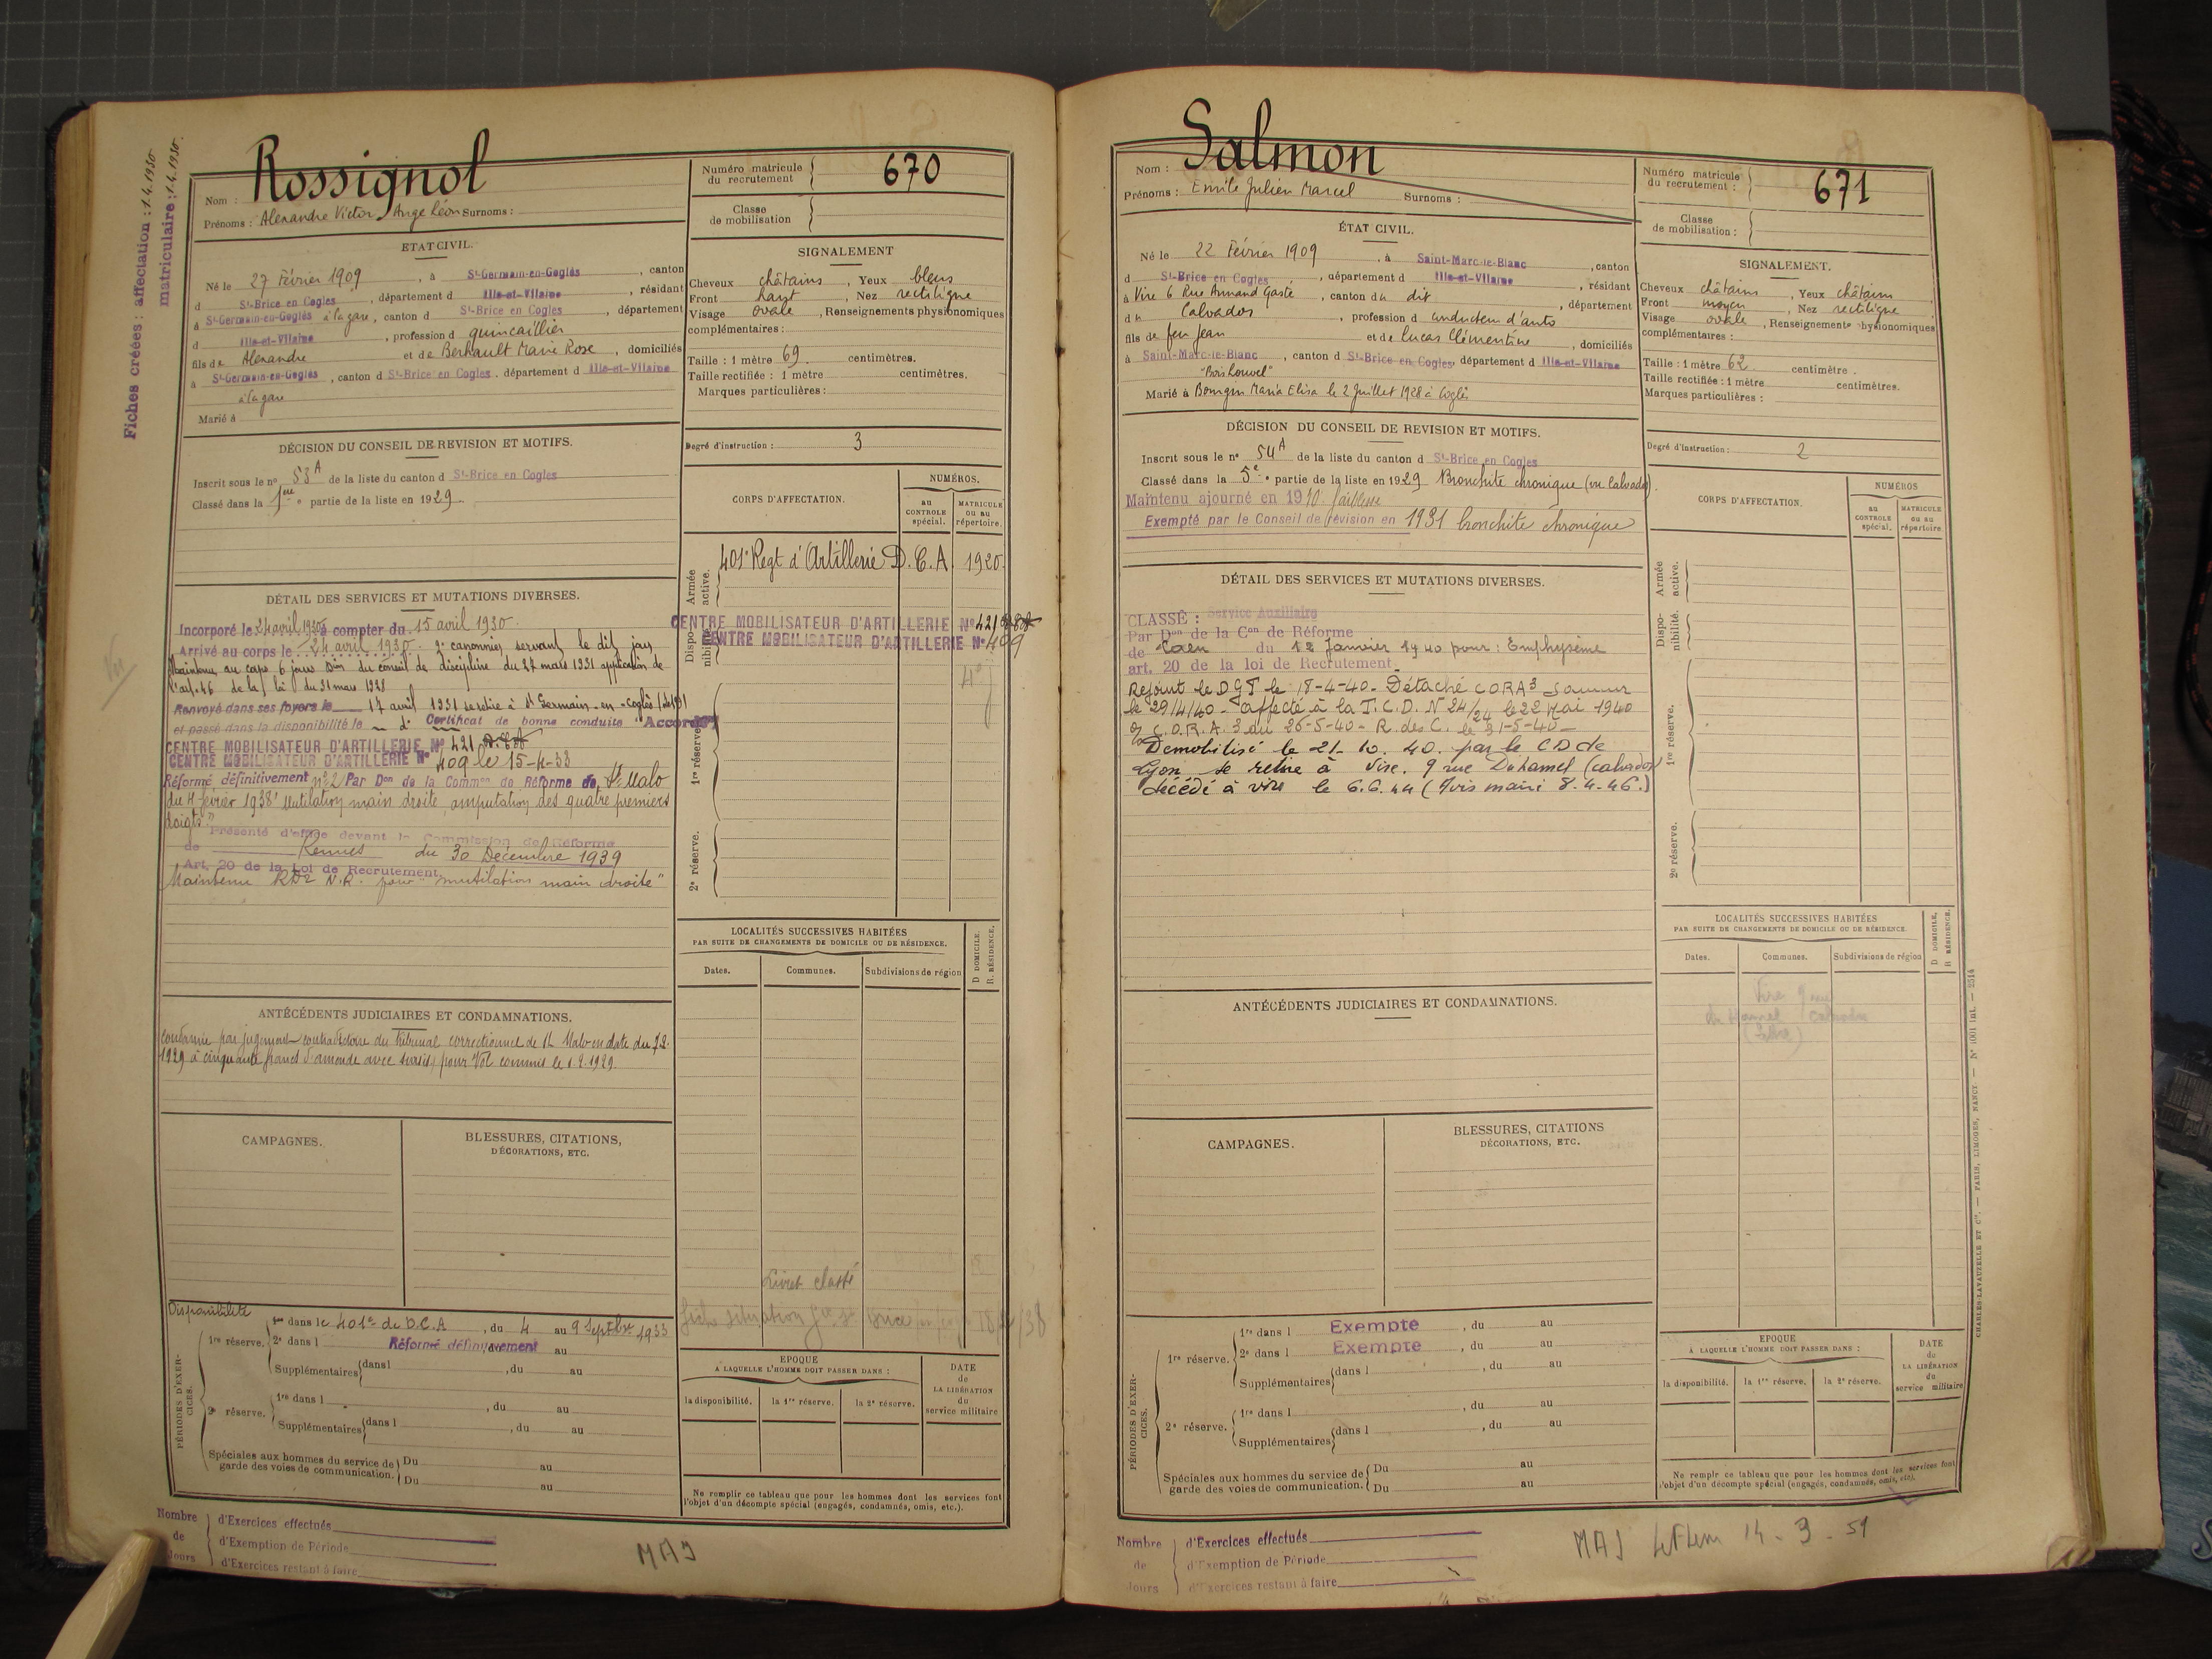 Fiches créées : affectation : 1.4.1930
matriculaire : 1.4.1930
Nom : Rossignol
Prénoms : Alexandre Victor Ange Léon Surnoms :
Numéro matricule du recrutement 670
Classe de mobilisation
ETAT CIVIL.
Né le 27 Février 1909, à St-Germain-en-Coglès, canton
d St-Brice en Cogles, département d Ille-et-Vilaine, résidant
à St-Germain-en-Coglès à la gare, canton d St-Brice en Cogles, département
d Ille-et-Vilaine, profession d quincaillier
fils de Alexandre et de Berhault Marie Rose, domiciliés
à St-Germain-en-Coglès, canton d St-Brice en Cogles. département d Ille-et-Vilaine
à la gare
Marié à
SIGNALEMENT
Cheveux châtains, Yeux bleus
Front haut, Nez rectiligne
Visage ovale, Renseignements physionomiques
complémentaires :
Taille : 1 mètre 69 centimètres.
Taille rectifiée : 1 mètre centimètres.
Marques particulières :
DÉCISION DU CONSEIL DE REVISION ET MOTIFS.
Inscrit sous le no 53 A de la liste du canton d St-Brice en Cogles
Classé dans la 1ère partie de la liste en 1929
Degré d'instruction : 3
CORPS D'AFFECTATION.
NUMÉROS.
au CONTROLE spécial.
MATRICULE ou au répertoire.
Armée active.
401e Regt d'Artillerie D.C.A 1920
Disponibilité
CENTRE MOBILISATEUR D'ARTILLERIE No 421
CENTRE MOBILISATEUR D'ARTILLERIE No 409
1re réserve.
2e réserve.
DÉTAIL DES SERVICES ET MUTATIONS DIVERSES.
Incorporé le 24 avril 1930 à compter du 15 avril 1930.
Arrivé au corps le 24 avril 1930. 2e canonnier servant le dit jour
Maintenu au corps 6 jours Don du conseil de discipline du 27 mars 1931 application de
l'art. 46 de la loi du 31 mars 1928
Renvoyé dans ses foyers le 17 avril 1931 se retire à St Germain-en-Coglès
et passé dans la disponibilité le d° Certificat de bonne conduite Accordé
CENTRE MOBILISATEUR D'ARTILLERIE No 421 D.C.A
CENTRE MOBILISATEUR D'ARTILLERIE No 409 le 15-4-33
Réformé définitivement no 2 Par Don de la Common de Réforme de St Malo
du 4 février 1938 "Mutilation main droite, amputation des quatre premiers
doigts."
Présenté d'office devant la Commission de Réforme
de Rennes du 30 Décembre 1939
Art. 20 de la Loi de Recrutement.
Maintenu RD2 N.R. pour "mutilation main droite"
LOCALITÉS SUCCESSIVES HABITÉES
PAR SUITE DE CHANGEMENTS DE DOMICILE OU DE RÉSIDENCE.
Dates.
Communes.
Subdivisions de région
D DOMICILE.
R. RÉSIDENCE.
ANTÉCÉDENTS JUDICIAIRES ET CONDAMNATIONS.
Condamné par jugement contradictoire du Tribunal correctionnel de St Malo en date du 7.2.
1929 à cinquante francs d'amende avec sursis, pour Vol commis le 1.2.1929.
CAMPAGNES.
BLESSURES, CITATIONS,
DÉCORATIONS, ETC.
Livret classé
Disponibilité
PÉRIODES D'EXERCICES.
1re réserve.
1re dans le 401e de D.C.A, du 4 au 9 Septbre 1933
2e dans l Réformé définitivement au
Supplémentaires dans l, du au
2e réserve.
1re dans l, du au
Supplémentaires dans l, du au
Spéciales aux hommes du service de garde des voies de communication. Du au
Du au
EPOQUE
A LAQUELLE L'HOMME DOIT PASSER DANS :
la disponibilité.
la 1re réserve.
la 2e réserve.
DATE de LA LIBÉRATION du service militaire
Ne remplir ce tableau que pour les hommes dont les services font
l'objet d'un décompte spécial (engagés, condamnés, omis, etc.).
Nombre de Jours
d'Exercices effectués
d'Exemption de Période
d'Exercices restant à faire
MAJ
Nom : Salmon
Prénoms : Emile Julien Marcel Surnoms :
Numéro matricule du recrutement : 671
Classe de mobilisation :
ÉTAT CIVIL.
Né le 22 Février 1909, à Saint-Marc-le-Blanc, canton
d St-Brice en Cogles, département d Ille-et-Vilaine, résidant
à Vire 6 Rue Armand Gasté, canton du dit, département
du Calvados, profession d conducteur d'auto
fils de feu Jean et de Lucas Clémentine, domiciliés
à Saint-Marc-le-Blanc, canton d St-Brice en Cogles, département d Ille-et-Vilaine
"Bois Louvel"
Marié à Bourgin Maria Elisa le 2 Juillet 1928 à Coglès
SIGNALEMENT.
Cheveux châtains, Yeux châtains
Front moyen, Nez rectiligne
Visage ovale, Renseignements physionomiques
complémentaires :
Taille : 1 mètre 62 centimètre.
Taille rectifiée : 1 mètre centimètres.
Marques particulières :
DÉCISION DU CONSEIL DE REVISION ET MOTIFS.
Inscrit sous le no 54 A de la liste du canton d St-Brice en Cogles
Classé dans la 5e partie de la liste en 1929 Bronchite chronique (vu Calvados)
Maintenu ajourné en 1930 faiblesse
Exempté par le Conseil de révision en 1931 bronchite chronique
Degré d'instruction : 2
CORPS D'AFFECTATION.
NUMÉROS
au CONTROLE spécial.
MATRICULE ou au répertoire
Armée active.
Disponibilité.
1re réserve.
2e réserve.
DÉTAIL DES SERVICES ET MUTATIONS DIVERSES.
CLASSÉ : Service Auxiliaire
Par Don de la Con de Réforme
de Caen du 12 Janvier 1940 pour : Emphysème
art. 20 de la loi de Recrutement.
Rejoint le DGT le 18-4-40. Détaché CORA3 Saumur
le 29/4/40. affecté à la T.C.D. N° 24/24 le 22 Mai 1940
C.O.R.A. 3 du 26-5-40 - R. des C. le 31-5-40 -
Démobilisé le 21. 10. 40. par le C D de
Lyon se retire à Vire. 9 rue Duhamel (calvados)
décédé à vire le 6.6.44 (Avis mairie 8.4.46.)
LOCALITÉS SUCCESSIVES HABITÉES
PAR SUITE DE CHANGEMENTS DE DOMICILE OU DE RÉSIDENCE.
Dates.
Communes.
Subdivisions de région
D DOMICILE,
R RÉSIDENCE.
Vire 9 rue
du Hamel Calvados
ANTÉCÉDENTS JUDICIAIRES ET CONDAMNATIONS.
CAMPAGNES.
BLESSURES, CITATIONS
DÉCORATIONS, ETC.
PÉRIODES D'EXERCICES.
1re réserve.
1re dans l Exempté, du au
2e dans l Exempté, du au
Supplémentaires dans l, du au
2e réserve.
1re dans l, du au
Supplémentaires dans l, du au
Spéciales aux hommes du service de garde des voies de communication. Du au
Du au
EPOQUE
A LAQUELLE L'HOMME DOIT PASSER DANS :
la disponibilité.
la 1re réserve.
la 2e réserve.
DATE du LA LIBÉRATION du service militaire
Ne remplir ce tableau que pour les hommes dont les services font
l'objet d'un décompte spécial (engagés, condamnés, omis, etc).
CHARLES-LAVAUZELLE ET Cie. — PARIS, LIMOGES, NANCY — No 1001 int. — 2514
Nombre de Jours
d'Exercices effectués
d'Exemption de Période
d'Exercices restant à faire
MAJ 14 - 3 - 51